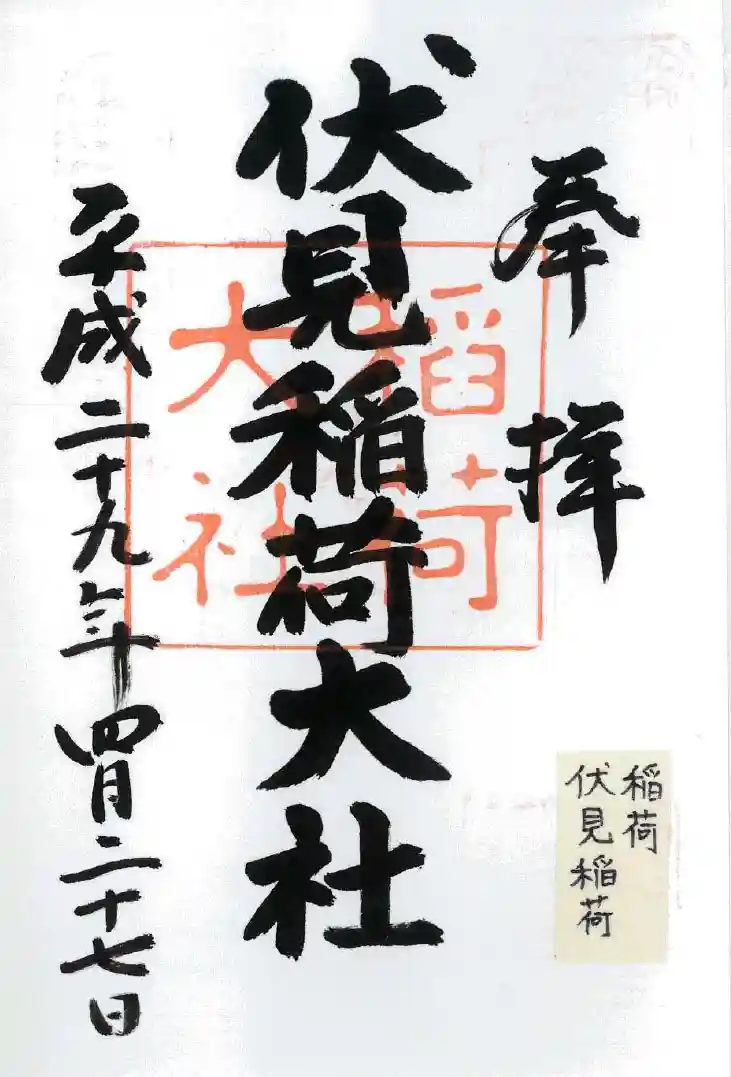 奉拝
伏見稲荷大社
稲荷
大社
平成二十九年四月二十七日
稲荷
伏見稲荷